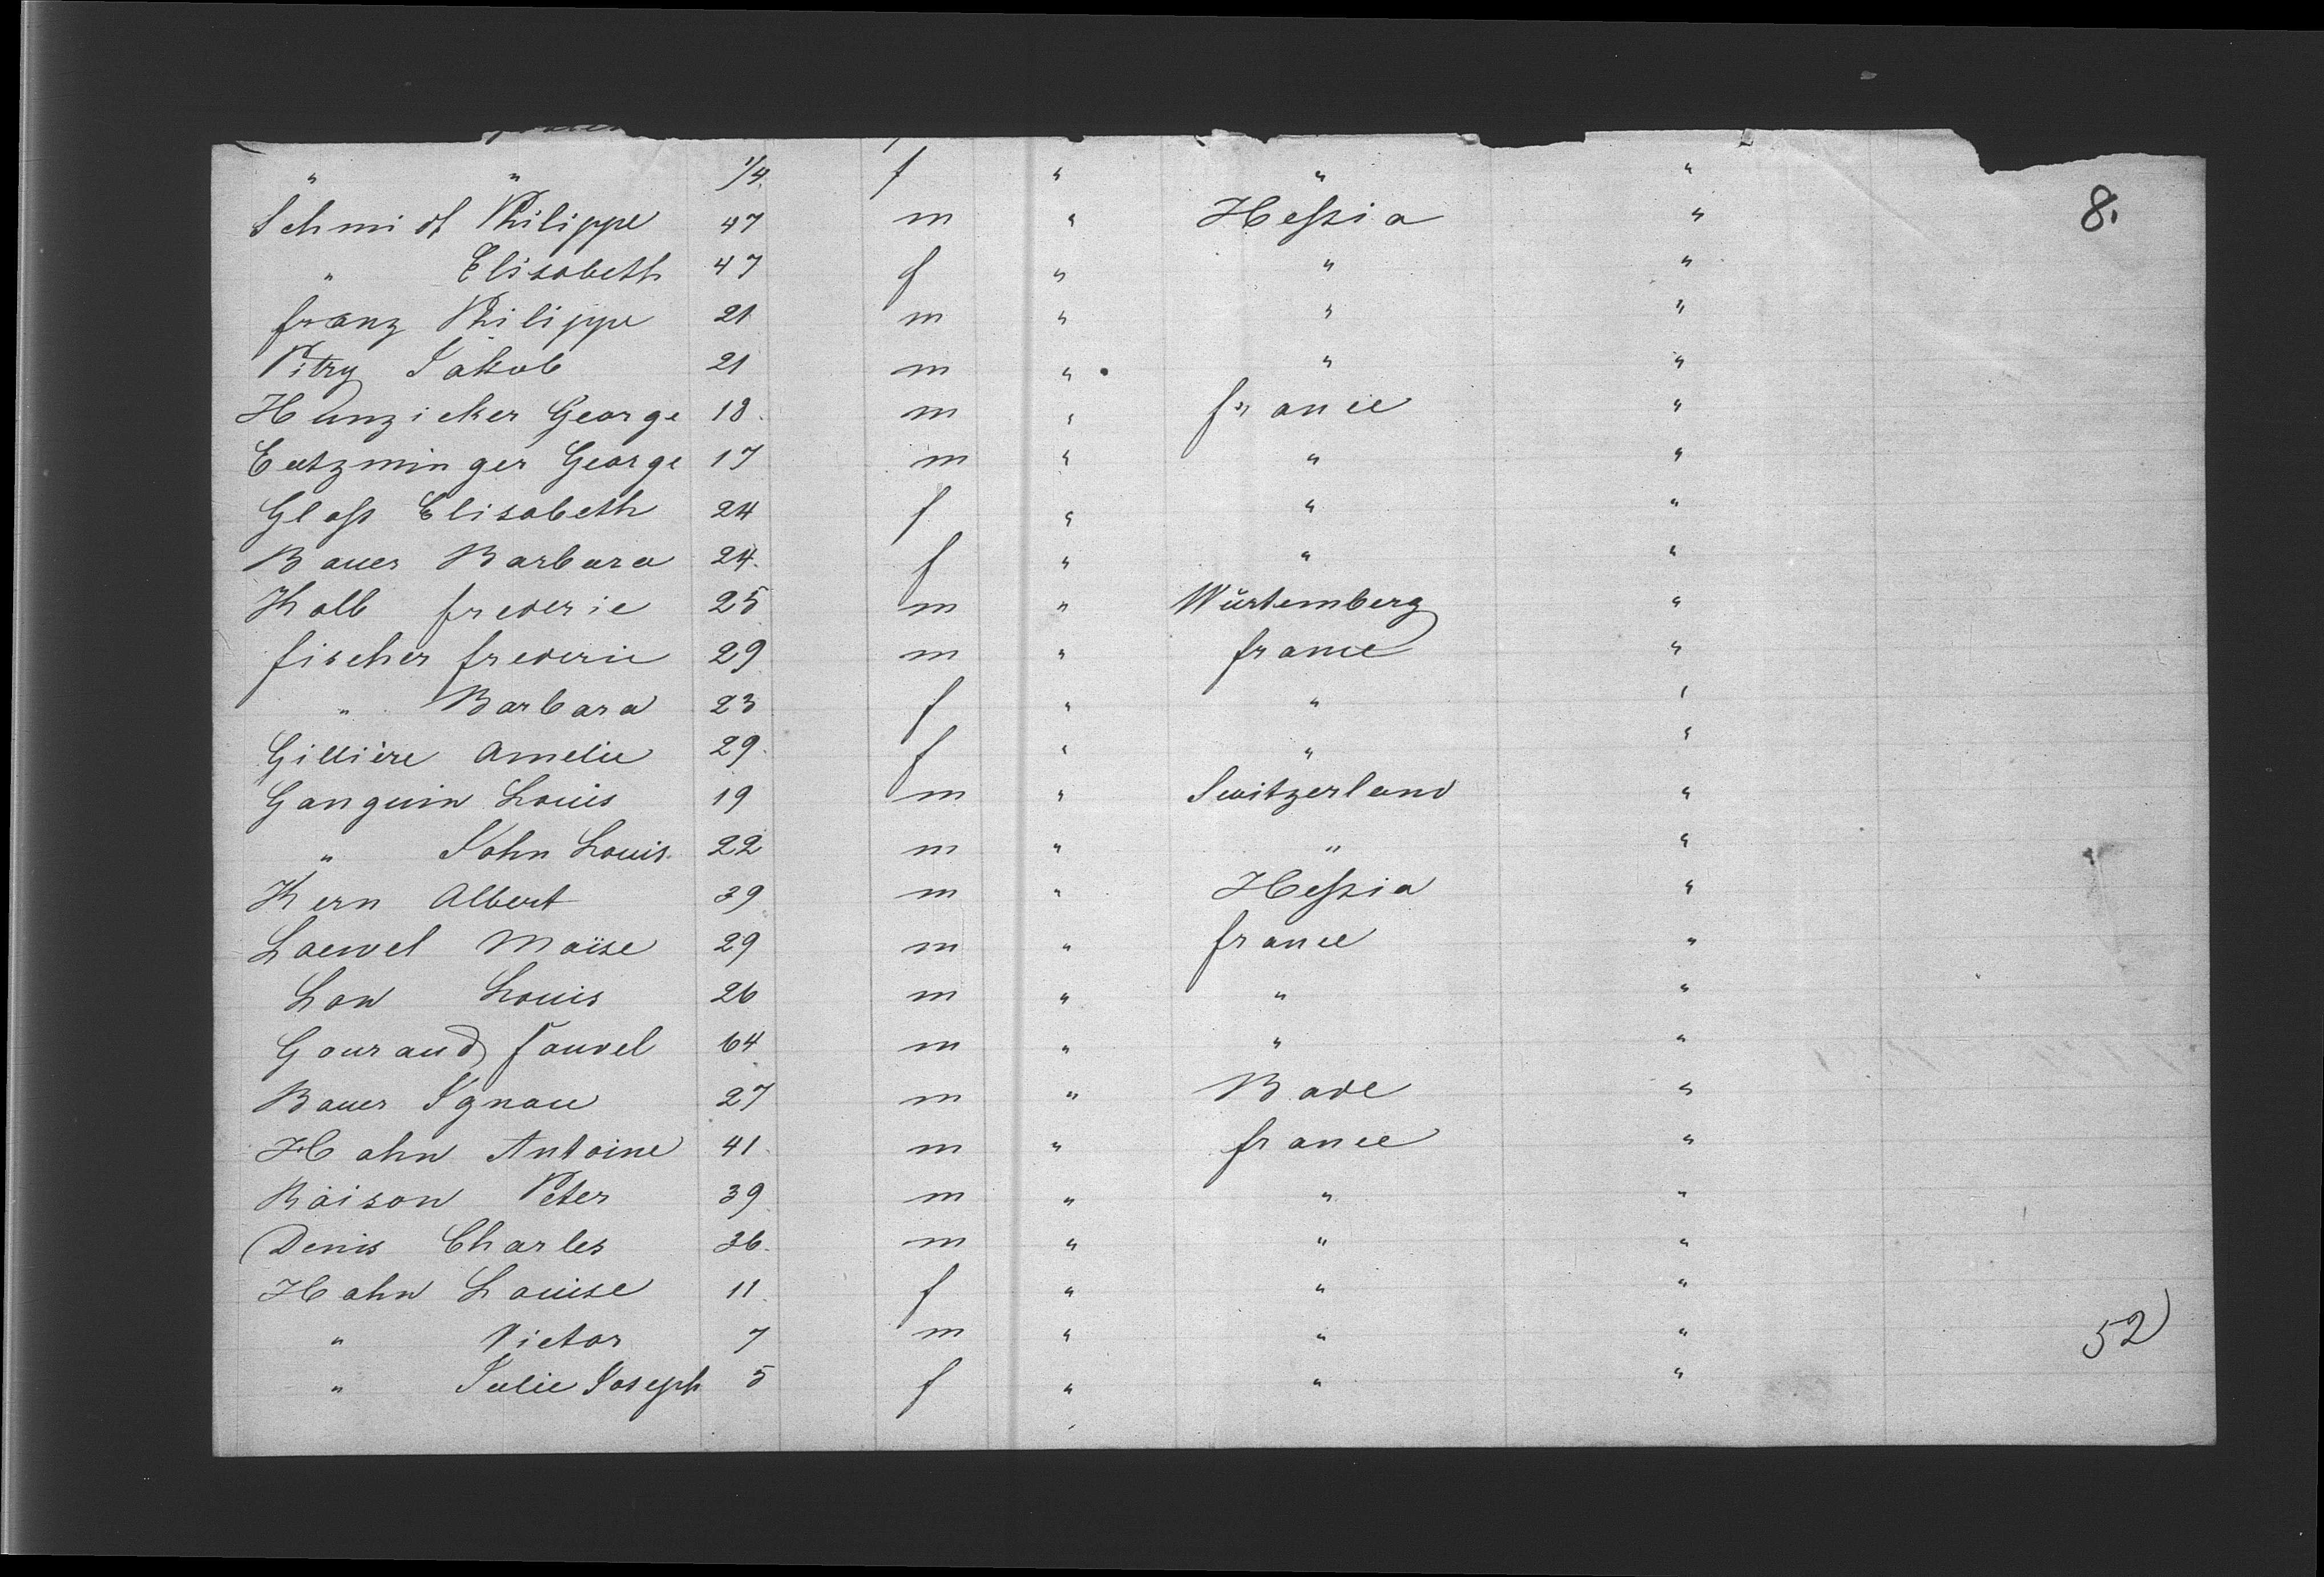 " " 1/4. f " " "
Schmidt Philippe 47 m " Heſsia " 8.
" Elisabeth 47 f " " "
franz Philippe 21 m " " "
Pitry Jakob 21 m " " "
Hunzicker George 18. m " france "
Eutzminger George 17 m " " "
Glaſs Elisabeth 24 f " " "
Bauer Barbara 24. f " " "
Kolb frederic 25 m " Würtemberg "
fischer frederic 29 m " france "
" Barbara 23 f " " "
Gillière Amelie 29. f " " "
Ganguin Louis 19 m " Switzerland "
" John Louis. 22 m " " "
Kern Albert 39 m " Heſsia "
Laewel Moïse 29 m " france "
Law Louis 26 m " " "
Gouraud fauvel 64 m " " "
Bauer Ignace 27 m " Bade "
Hahn Antoine 41. m " france "
Raison Peter 39. m " " "
Denis Charles 36. m " " "
Hahn Louise 11. f " " "
" Victor 7 m " " " 52
" Julie Joseph 5 f " " "